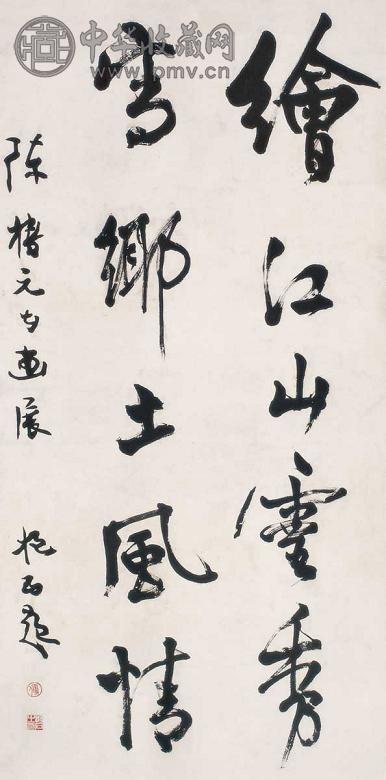 中华收藏网
www.pmv.cn
繪江山靈秀
寫鄉土風情
陳元畫展
題